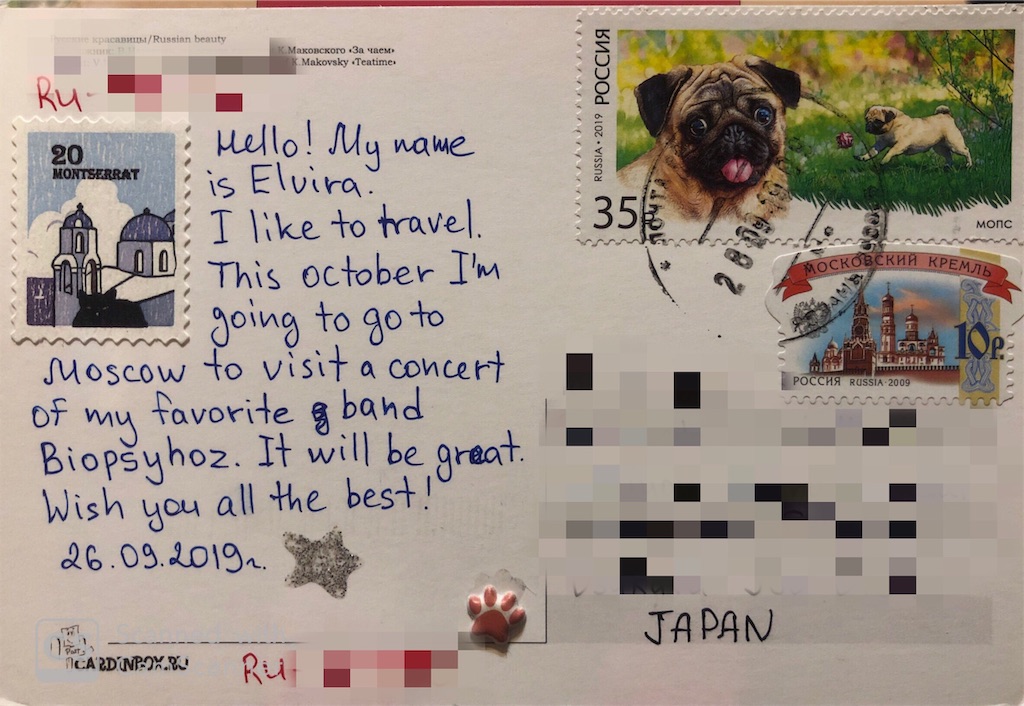 красавицы/Russian beauty
К.Маковского «За чаем»
K.Makovsky «Teatime»
RU-
20
MONTSERRAT
Hello! My name
is Elvira.
I like to travel.
This october I'm
going to go to
Moscow to visit a concert
of my favorite band
Biopsyhoz. It will be great.
Wish you all the best!
26.09.2019г.
CARDINBOX.RU
RU-
RUSSIA • 2019 РОССИЯ
35
МОПС
ПОЧТА
28 09 19
МОСКОВСКИЙ КРЕМЛЬ
10р.
РОССИЯ RUSSIA·2009
JAPAN